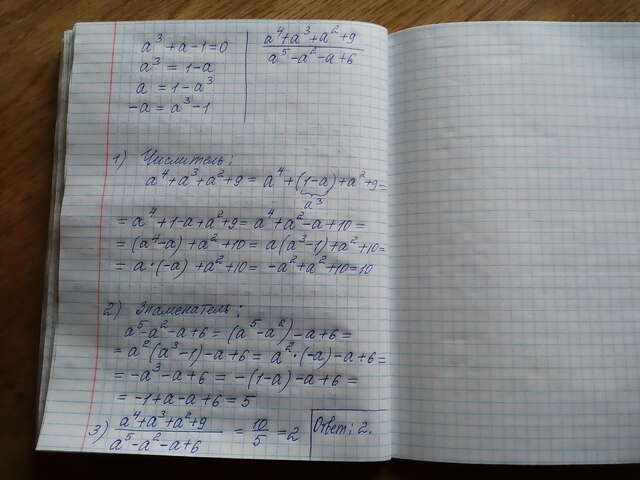 a³ + a - 1 = 0
a³ = 1 - a
a = 1 - a³
-a = a³ - 1
a⁴ + a³ + a² + 9
a⁵ - a² - a + 6
1) Числитель:
a⁴ + a³ + a² + 9 = a⁴ + (1 - a) + a² + 9 =
a³
= a⁴ + 1 - a + a² + 9 = a⁴ + a² - a + 10 =
= (a⁴ - a) + a² + 10 = a(a³ - 1) + a² + 10 =
= a · (-a) + a² + 10 = -a² + a² + 10 = 10
2) Знаменатель:
a⁵ - a² - a + 6 = (a⁵ - a²) - a + 6 =
= a²(a³ - 1) - a + 6 = a² · (-a) - a + 6 =
= -a³ - a + 6 = -(1 - a) - a + 6 =
= -1 + a - a + 6 = 5
3) (a⁴ + a³ + a² + 9)/(a⁵ - a² - a + 6) = 10/5 = 2 Ответ: 2.